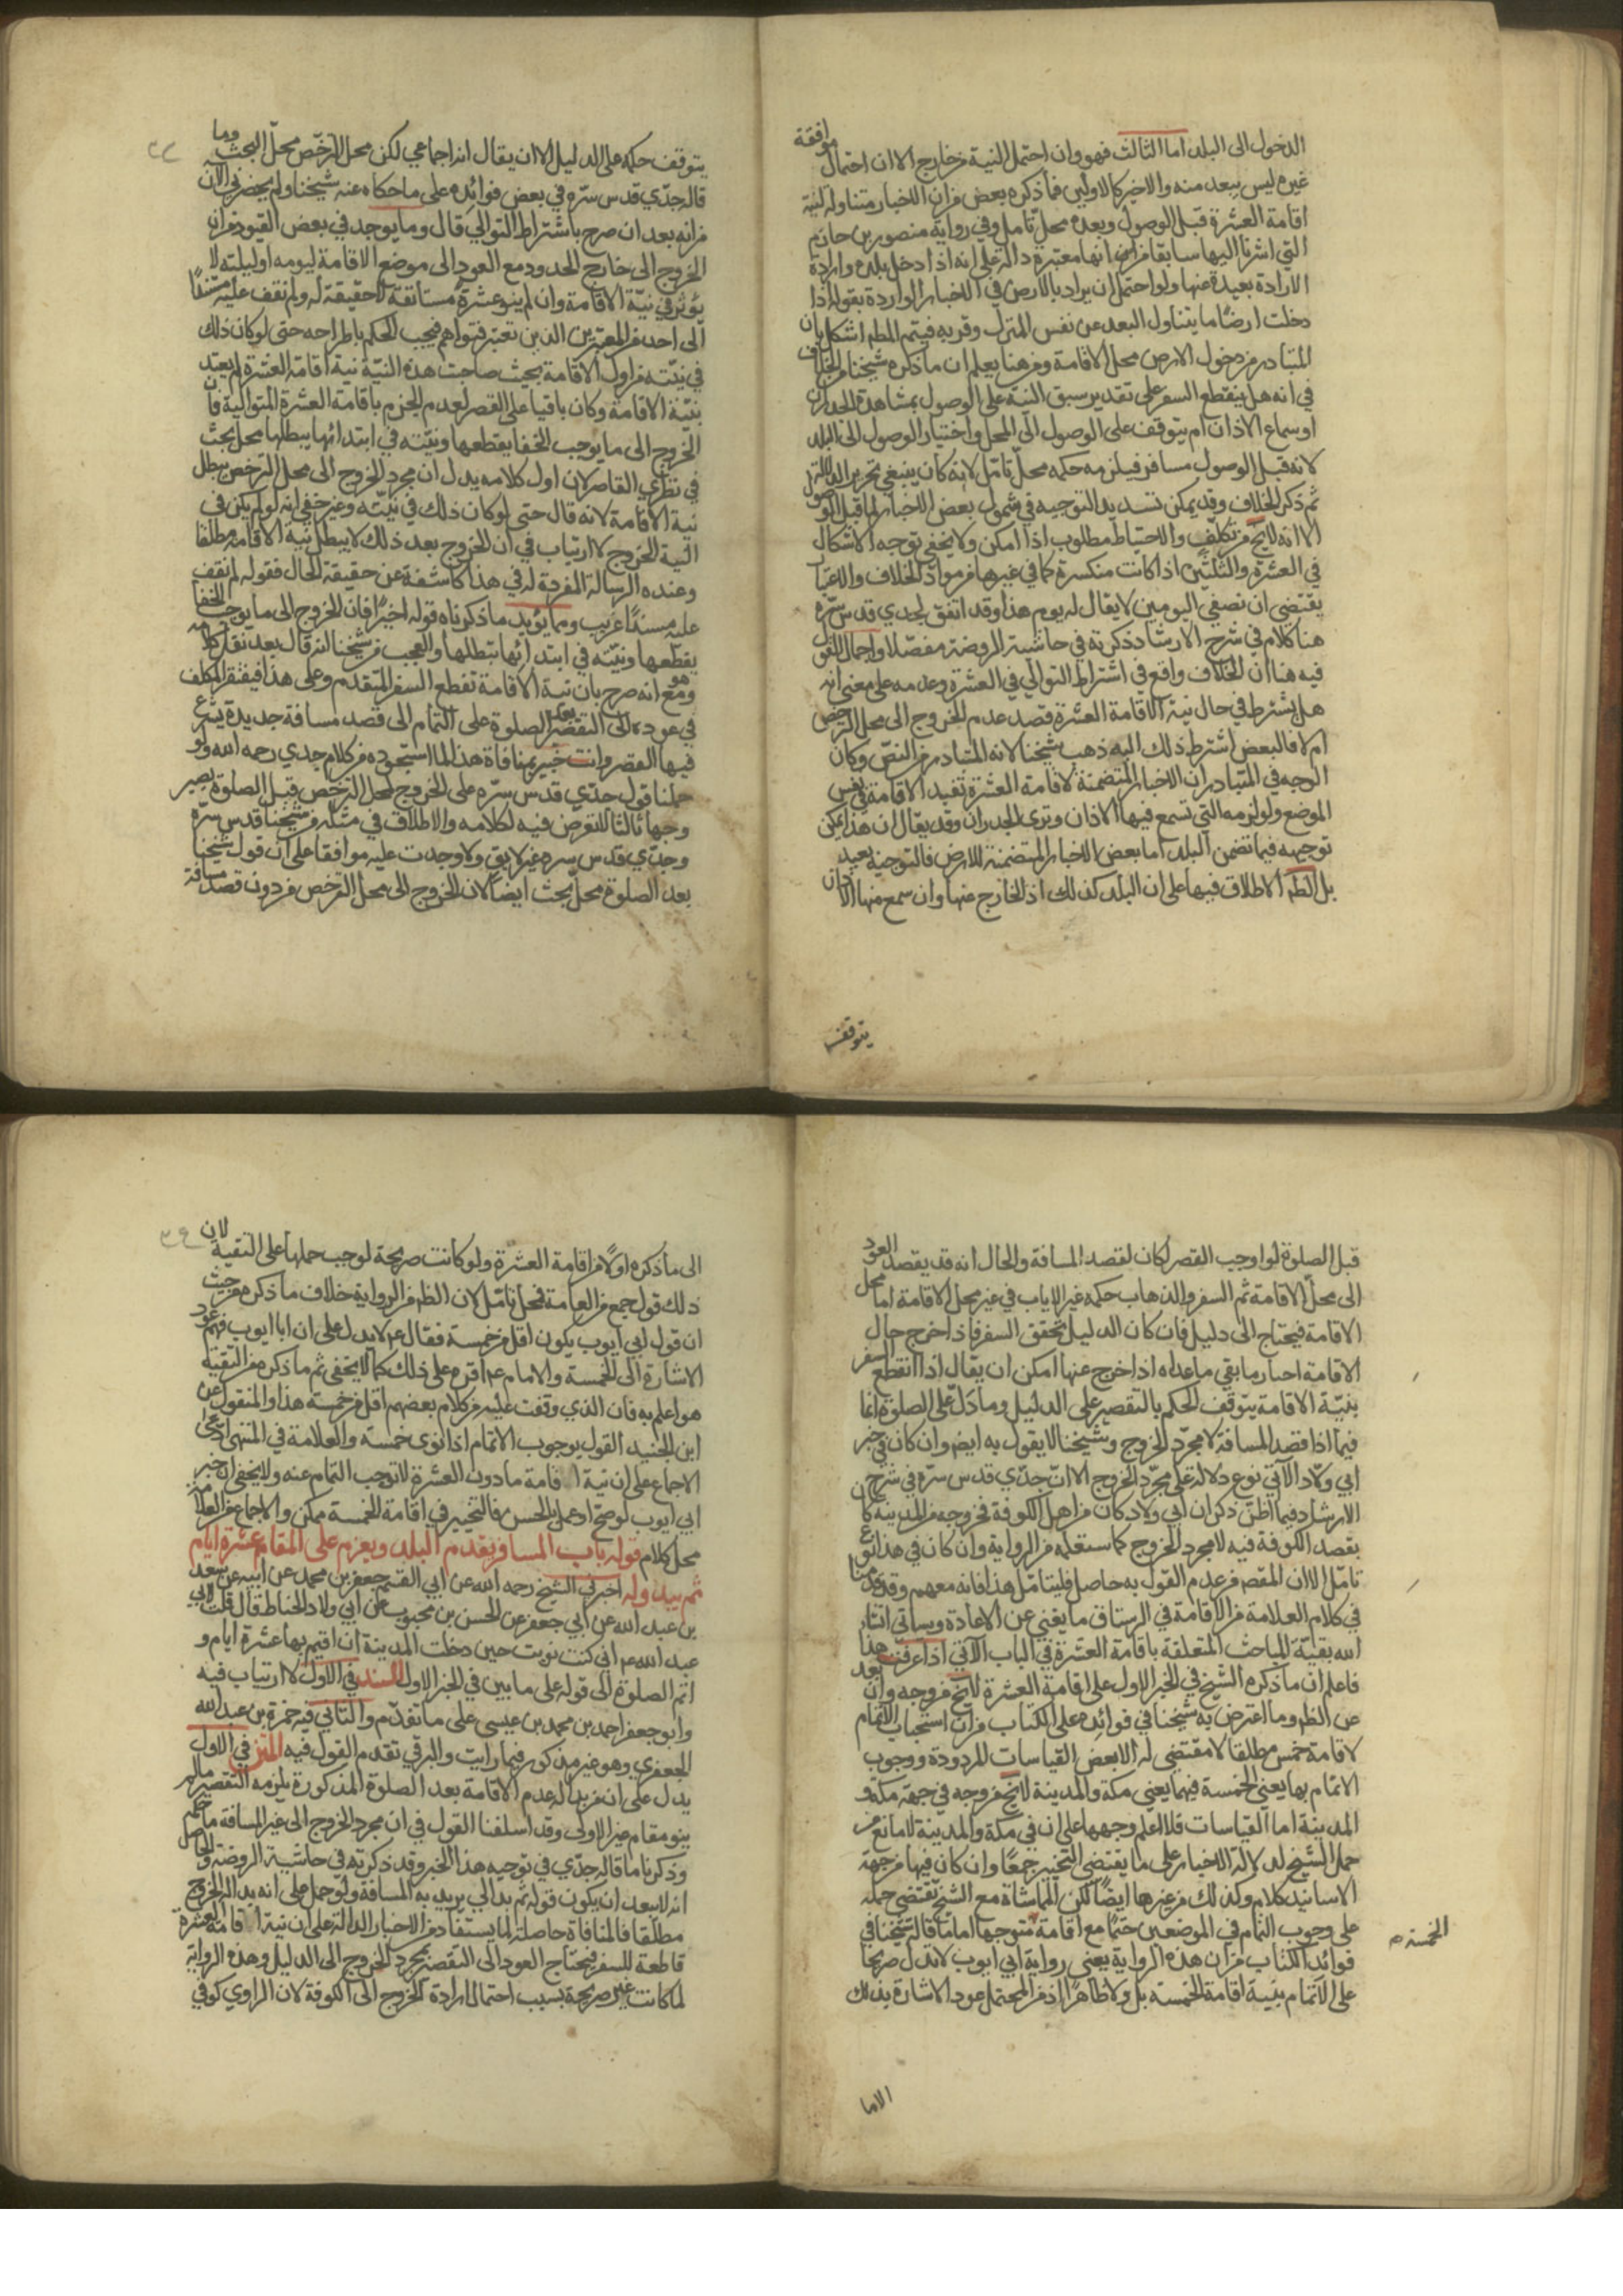 الدخول الى البلد اما الثالث فهو وان احتمل النية من خارج الا ان احتمال موافقة
غيره ليس ببعد منه والاخير كالاولين فما ذكره بعض من ان الاخبار متناولة لنية
اقامة العشرة قبل الوصول وبعده محل تامل وفي رواية منصور بن حازم
التي اشرنا اليها سابقا من انها معتبرة دالة على انه اذا دخل بلده وارادة
الارادة بعيدة عنها ولو احتمل ان يراد بالارض في الاخبار الواردة بقوله اذا
دخلت ارضًا ما يتناول البعد عن نفس المنزل وقربه فيتم المط اشكل بان
المتبادر من دخول الارض محل الاقامة ومن هنا يعلم ان ما ذكره شيخنا من الخلاف
في انه هل ينقطع السفر على تقدير سبق النية على الوصول بمشاهدة الجدران
او سماع الاذان ام يتوقف على الوصول الى المحل واختيار الوصول الى البلد
لانه قبل الوصول مسافر فيلزمه حكمه محل تامّل لانه كان ينبغي تحرير الدلالة
ثم ذكر الخلاف وقد يمكن تسديد التوجيه في شمول بعض الاخبار لما قبل الوصول
الا انه لا يخ من تكلّف والاحتياط مطلوب اذا امكن ولا يخفى توجه الاشكال
في العشرة والثلثين اذا كانت منكسرة كما في غيرها من مواد الخلاف والاعتبار
يقتضي ان نصفي اليومين لا يقال له يوم هذا وقد اتفق لجدي قدس سرّه
هنا كلام في شرح الارشاد ذكرته في حاشية الروضة مفصّلا واجمال القول
فيه هنا ان الخلاف واقع في اشتراط التوالي في العشرة وعدمه على معنى انه
هل يشترط في حال نية الاقامة العشرة قصد عدم الخروج الى محل الترخص
ام لا فالبعض اشترط ذلك اليه ذهب شيخنا لانه المتبادر من النصّ وكان
الوجه في المتبادر ان الاخبار المتضمنة لاقامة العشرة تفيد الاقامة في نفس
الموضع ولوازمه التي تسمع فيها الاذان وترى الجدران وقد يقال ان هذا يمكن
توجيهه فيما تضمن البلد اما بعض الاخبار المتضمنة للارض فالتوجيه بعيد
بل الظ الاطلاق فيها على ان البلد كذلك اذ الخارج عنها وان سمع منها الاذان
يتوقف
يتوقف حكمه على الدليل الا ان يقال انه اجماعي لكن محل الترخّص محلّ البحث وما
قاله جدّي قدس سرّه في بعض فوائده على ما حكاه عنه شيخنا ولم يحضرني الآن
من انه بعد ان صرح باشتراط التوالي قال وما يوجد في بعض القيود من ان
الخروج الى خارج الحدود مع العود الى موضع الاقامة ليومه او ليلته لا
يؤثر في نيّة الاقامة وان لم ينو عشرةً مستانفة لا حقيقة له ولم نقف عليه مستندًا
الى احد من المعتبرين الذين تعتبر فتواهم فيجب الحكم باطراحه حتى لو كان ذلك
في نيّته من اول الاقامة بحيث صاحبت هذه النيّة نية اقامة العشرة لم يعتد
بنيّة الاقامة وكان باقيا على القصر لعدم الجزم باقامة العشرة المتوالية فان
الخروج الى ما يوجب الخفا يقطعها ونيّته في ابتدائها يبطلها محل بحث
في نظري القاصر لان اول كلامه يدل ان مجرد الخروج الى محل الترخص يبطل
نية الاقامة لانه قال حتى لو كان ذلك في نيّته وغير خفي انه لو لم يكن في
النية الخروج لا ارتياب في ان الخروج بعد ذلك لا يبطل نية الاقامة مطلقا
وعنده الرسالة المفردة له في هذا كاشفة عن حقيقة الحال فقوله لم نقف
عليه مسندًا غريب ومما يؤيد ما ذكرناه قوله اخيرًا فان الخروج الى ما يوجب الخفا
يقطعها ونيّته في ابتدائها تبطلها والعجب من شيخنا انه قال بعد نقل كلامه
هو ومع انه صرح بان نية الاقامة تقطع السفر المتقدم وعلى هذا فيفتقر المكلف
في عوده الى التقصير بعد الصلوة على التمام الى قصد مسافة جديدة يشرع
فيها القصر وانت خبير بمنافاة هذا لما استجوده من كلام جدي رحمه الله ولو
حملنا قول جدّي قدس سرّه على الخروج لمحل الترخص قبل الصلوة يصير
وجها ثالثا للتعرض فيه لكلامه والاطلاق في مثله من شيخنا قدس سرّه
وجدّي قدس سره غير لايق ولا وجدت عليه موافقا على ان قول شيخنا
بعد الصلوة محلّ بحث ايضا لان الخروج الى محل الترخص من دون قصد مسافة
قبل الصلوة لو اوجب القصر لكان لقصد المسافة والحال انه قد يقصد العود
الى محلّ الاقامة ثم السفر والذهاب حكمه غير الاياب في غير محل الاقامة اما محل
الاقامة فيحتاج الى دليل فان كان الدليل تحقق السفر فاذا خرج حال
الاقامة اختيار ما بقي ما عداه اذا خرج عنها امكن ان يقال اذا انقطع السفر
بنيّة الاقامة يتوقف الحكم بالتقصير على الدليل وما دلّ على الصلوة انما
فيما اذا قصد المسافة لا مجرّد الخروج وشيخنا لا يقول به ايضا وان كان في خبر
ابي ولّاد الآتي نوع دلالة على مجرّد الخروج الا انّ جدّي قدس سرّه في شرح
الارشاد فيما اظنّ ذكر ان ابي ولاد كان من اهل الكوفة فخروجه من المدينة كان
بقصد الكوفة فيه لا مجرد الخروج كما ستعلمه من الرواية وان كان في هذا نوع
تامّل الا ان المقصر من عدم القول به حاصل فليتامّل هذا فانه معهم وقد قدمنا
في كلام العلامة من الاقامة في الرستاق ما يغني عن الاعادة وسياتي انشاء
الله بقيّة المباحث المتعلقة باقامة العشرة في الباب الآتي اذا عرفت هذا
فاعلم ان ما ذكره الشيخ في الخبر الاول على اقامة العشرة لا يخ من وجه وان بعد
عن الظ وما اعترض به شيخنا في فوائده على الكتاب من ان استحباب الاتمام
لاقامة خمس مطلقا لا مقتضى له الا بعض القياسات المردودة ووجوب
الاتمام بها يعني الخمسة فيهما يعني مكة والمدينة لا يخ من وجه في جهة مكة و
المدينة اما القياسات فلا اعلم وجهها على ان في مكة والمدينة لا مانع من
حمل الشيخ لدلالة الاخبار على ما يقتضي التخيير جمعًا وان كان فيها من جهة
الاسانيد كلام وكذلك من غيرها ايضًا لكن المماشاة مع الشيخ تقتضي حمله
على وجوب التمام في الموضعين حتمًا مع اقامة متوجها اما ما قاله شيخنا في
الخمسة
فوائد الكتاب من ان هذه الرواية يعني رواية ابي ايوب لا تدل صريحا
على الاتمام بنية اقامة الخمسة بل ولا ظاهرًا اذ من المحتمل عود الاشارة بذلك
الى ما ذكره اولًا من اقامة العشرة ولو كانت صريحة لوجب حملها على التقية لان
ذلك قول جمع من العامة فمحل تامّل لان الظ من الرواية خلاف ما ذكره من حيث
ان قول ابي ايوب يكون اقل من خمسة فقال عم لا يدل على ان ابا ايوب فهم عود
الاشارة الى الخمسة والامام عم اقره على ذلك كما لا يخفى ثم ما ذكره من التقية
هو اعلم به فان الذي وقفت عليه من كلام بعضهم اقل من خمسة هذا والمنقول عن
ابن الجنيد القول بوجوب الاتمام اذا نوى خمسة والعلامة في المنتهى ادعى
الاجماع على ان نية اقامة ما دون العشرة لا توجب التمام عنه ولا يخفى ان خبر
ابي ايوب لو صح او عمل بالحسن فالتخيير في اقامة الخمسة ممكن والاجماع من العلامة
محل كلام قوله باب المسافر يقدم البلد ويعزم على المقام عشرة ايام
ثم يبدو له اخبرني الشيخ رحمه الله عن ابي القسم جعفر بن محمد عن ابيه عن سعد
بن عبد الله عن ابي جعفر عن الحسن بن محبوب عن ابي ولاد الحناط قال قلت لابي
عبد الله عم اني كنت نويت حين دخلت المدينة ان اقيم بها عشرة ايام و
اتم الصلوة الى قوله على ما بين في الخبر الاول السند في الاول لا ارتياب فيه
وابو جعفر احمد بن محمد بن عيسى على ما تقدّم والثاني فيه حمزة بن عبد الله
الجعفري وهو غير مذكور فيما رايت والبرقي تقدم القول فيه المتن في الاول
يدل على ان من بدا له عدم الاقامة بعد الصلوة المذكورة يلزمه التقصير ما لم
ينو مقام غير الاولى وقد اسلفنا القول في ان مجرد الخروج الى غير المسافة ما حكمه
وذكرنا ما قاله جدّي في توجيه هذا الخبر وقد ذكرته في حاشية الروضة والحاصل
انه لا يبعد ان يكون قوله ثم بدا لي يريد به المسافة ولو حمل على انه بدا له الخروج
مطلقا فالمنافاة حاصلة لما يستفاد من الاخبار الدالة على ان نية اقامة العشرة
قاطعة للسفر فيحتاج العود الى التقصير بمجرد الخروج الى الدليل وهذه الرواية
لما كانت غير صريحة بسبب احتمال ارادة الخروج الى الكوفة لان الراوي كوفي